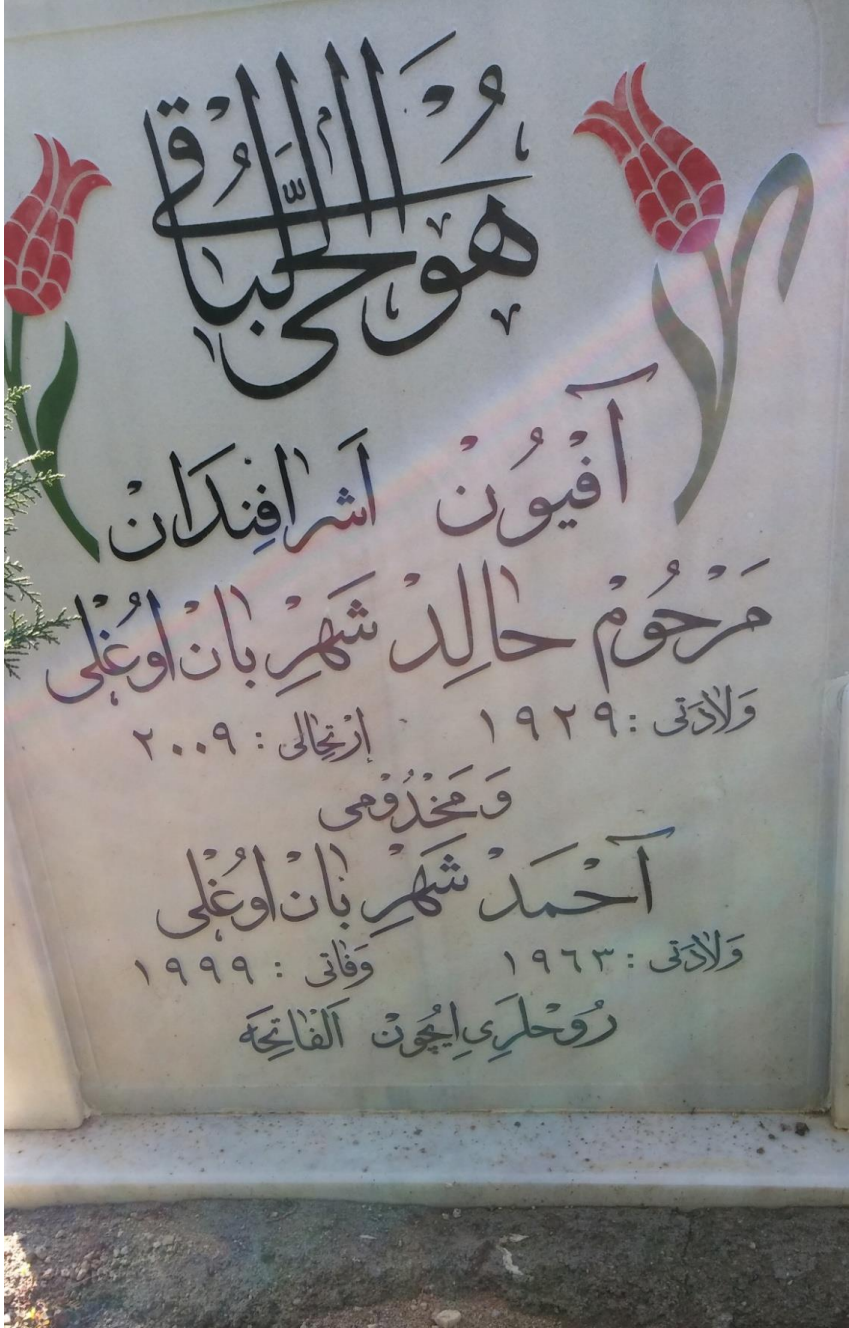 هُوَ الْحَيُّ الْبَاقِي
آفْيُونْ اَشْرَافِنْدَانْ
مَرْحُومْ خَالِدْ شَهْرِبَانْ اوُغْلِی
وَلَادَتی : ١٩٢٩ اِرْتِحَالی : ٢٠٠٩
وَ مَخْدُومْی
آحْمَدْ شَهْرِبَانْ اوُغْلِی
وَلَادَتی : ١٩٦٣ وَفَاتی : ١٩٩٩
رُوْحْلَرِی اِیچُونْ اَلْفَاتِحَه